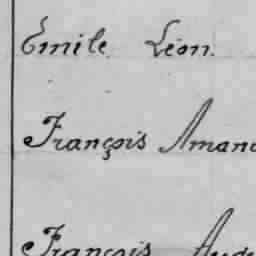 Emile Léon.
François Aman
François